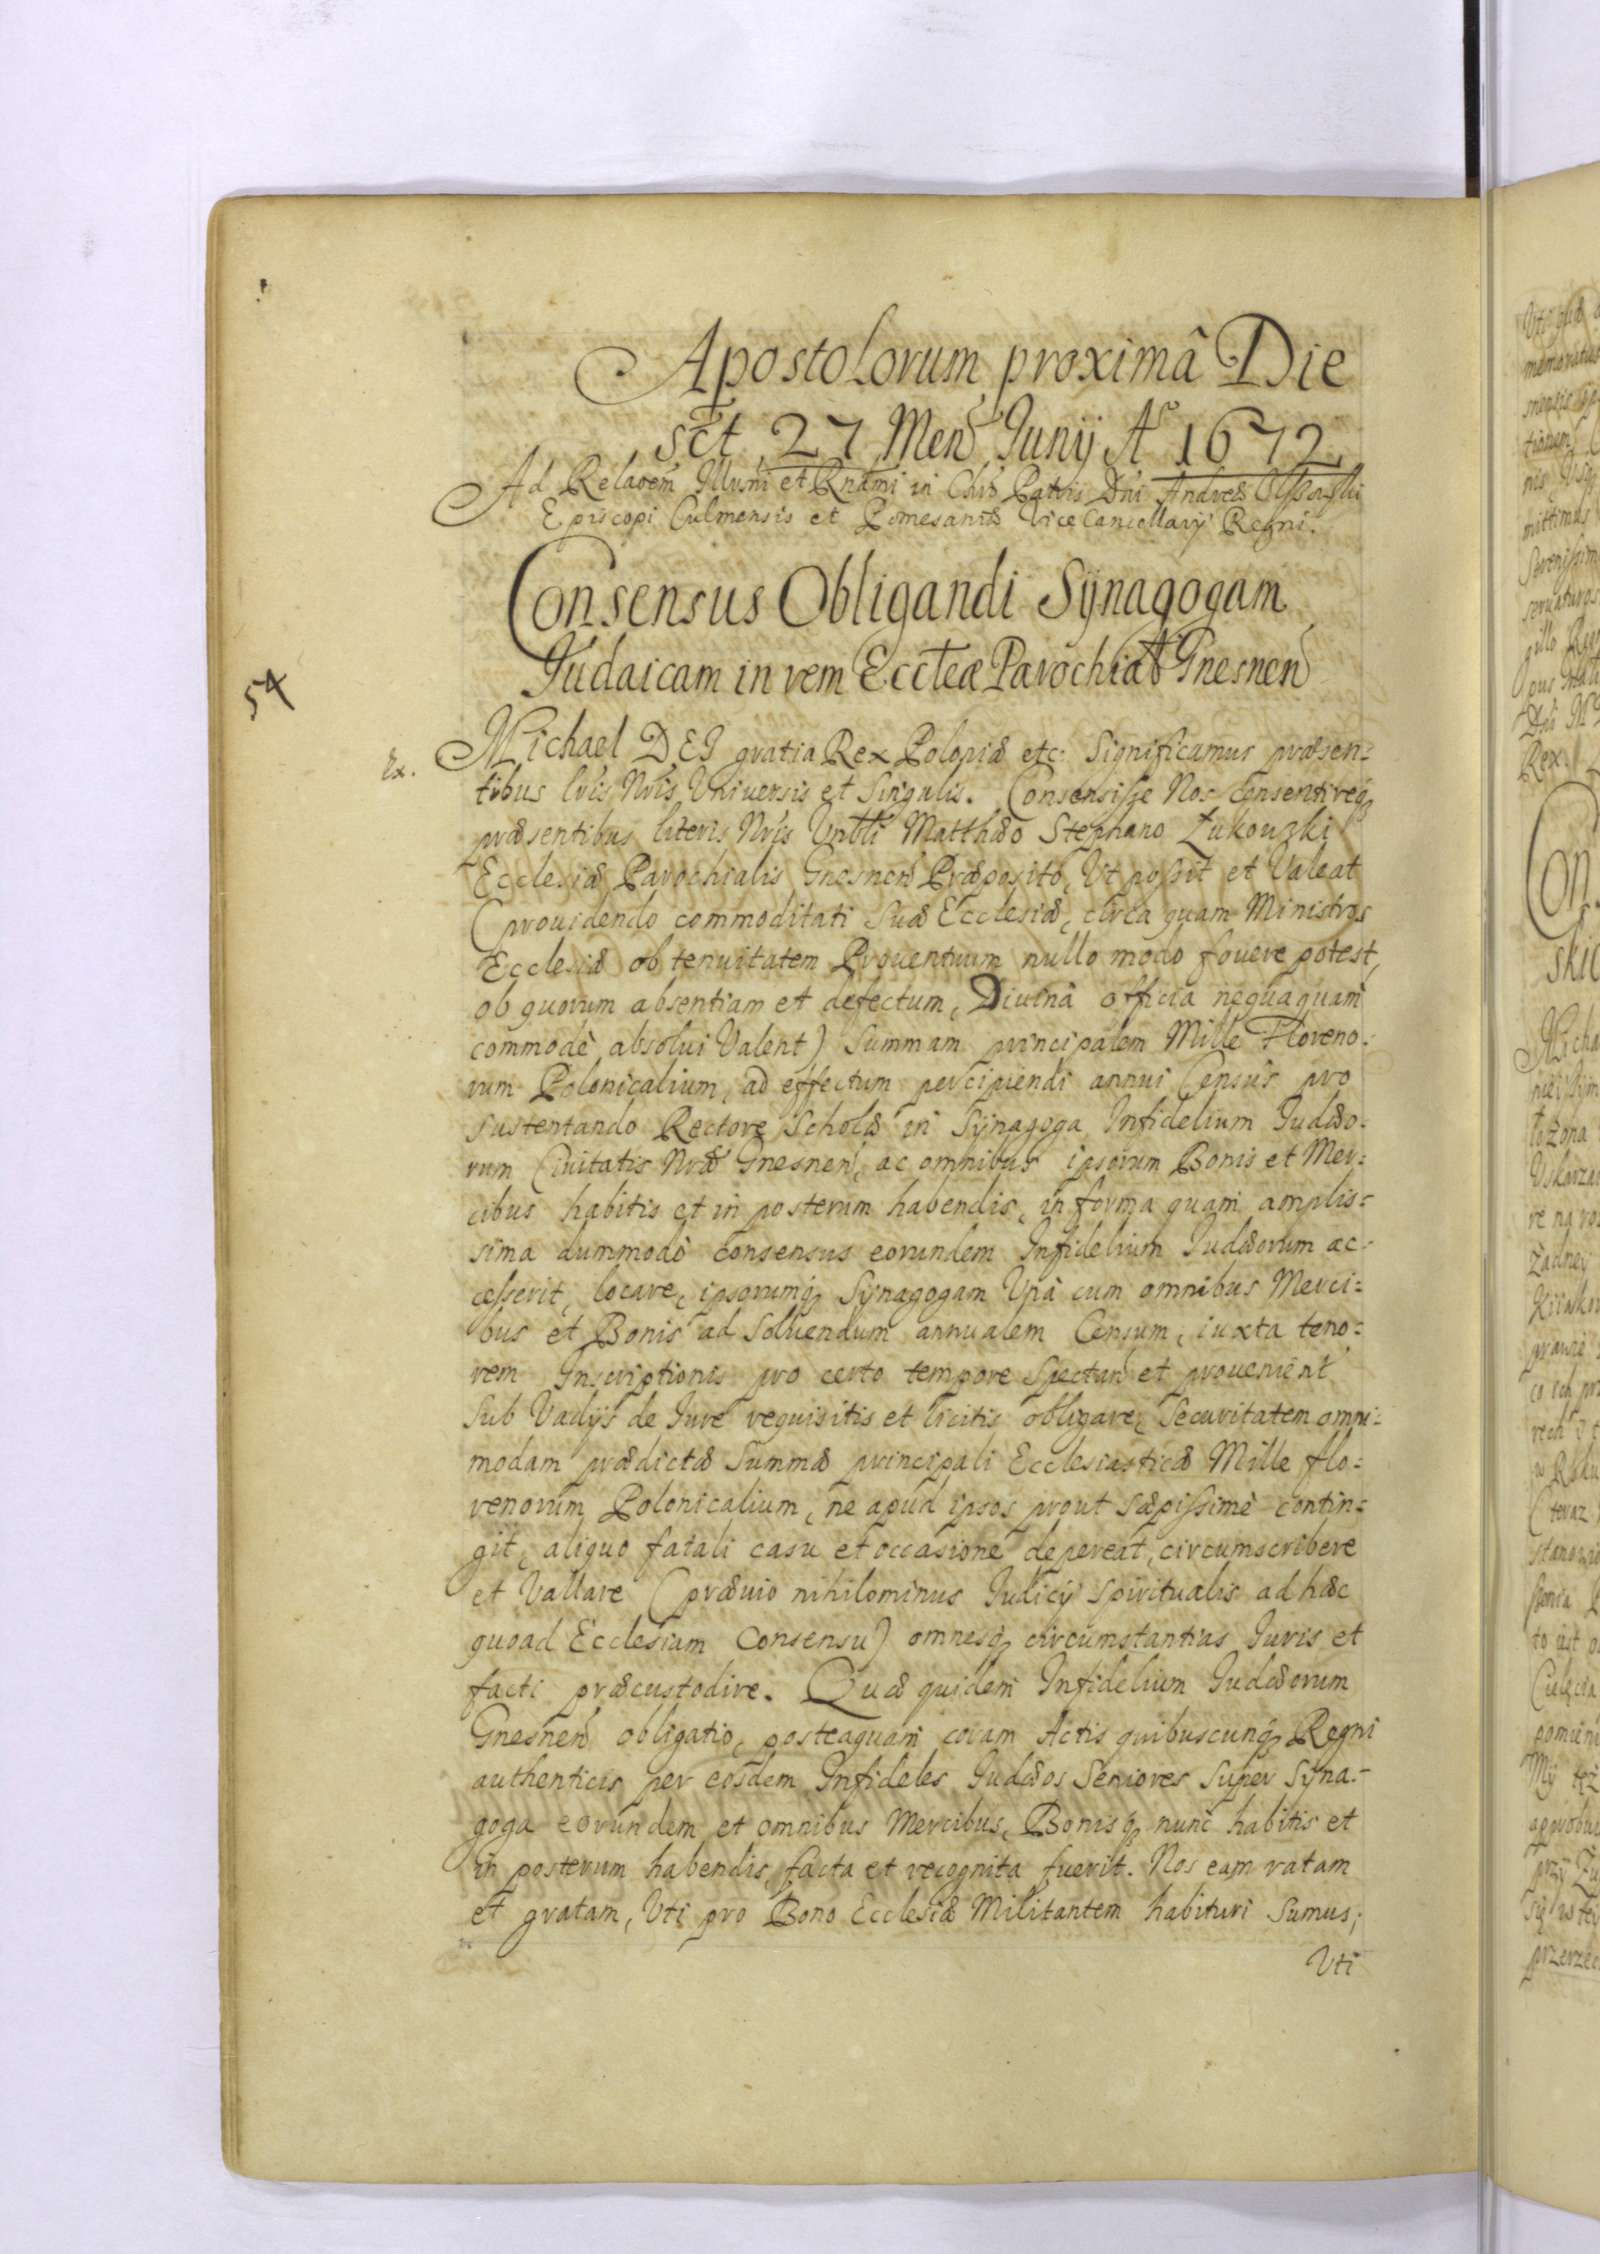 Apostolorum proximâ Die
sct. 27 Men Junij Ao 1672.
Ad Relaoem Illusmi et Rndmi in Chro Patris Dni Andreæ Olszowski
Episcopi Culmensis et Pomesaniæ Vice Cancellarij Regni.
Consensus Obligandi Synagogam
Judaicam in rem Eccleæ Parochial Gnesnen
54
Ex.
Michael DEI gratia Rex Poloniæ etc: Significamus præsen:
tibus lris Nris Universis et Singulis. Consensisse Nos consentireq
præsentibus literis Nris Vnbli Matthæo Stephano Zukowzki
Ecclesiæ Parochialis Gnesnen Præposito, Vt possit et Valeat
(prouidendo commoditati Suæ Ecclesiæ, circa quam Ministros
Ecclesiæ ob tenuitatem Prouentuum nullo modo fouere potest,
ob quorum absentiam et defectum, Diuina officia nequaquam
commodè absolui Valent) Summam principalem Mille Floreno:
rum Polonicalium, ad effectum percipiendi annui Census pro
sustentando Rectore Scholæ in Synagoga Infidelium Judæo:
rum Ciuitatis Nræ Gnesnen, ac omnibus ipsorum Bonis et Mer:
cibus habitis et in posterum habendis, in forma quam amplis:
sima dummodò consensus eorundem Infidelium Judæorum ac:
cesserit, locare, ipsorumq Synagogam Vnà cum omnibus Merci:
bus et Bonis ad Soluendum annualem Censum, iuxta teno:
rem Inscriptionis pro certo tempore Spectan et prouenient
Sub Vadijs de Jure requisitis et licitis obligare, Securitatem omni:
modam prædictæ Summæ principali Ecclesiasticæ Mille flo:
renorum Polonicalium, ne apud ipsos prout Sæpissimè contin:
git, aliquo fatali casu et occasione depereat, circumscribere
et Vallare (præuio nihilominus Judicij Spiritualis ad hæc
quoad Ecclesiam Consensu) omnesq circumstantias Juris et
facti præcustodire. Quæ quidem Infidelium Judæorum
Gnesnen obligatio, posteaquam coram Actis quibuscunq Regni
authenticis per eosdem Infideles Judæos Seniores Super Syna:
goga eorundem et omnibus Mercibus, Bonisq nunc habitis et
in posterum habendis, facta et recognita fuerit. Nos eam ratam
et gratam, Vti pro Bono Ecclesiæ Militantem habituri Sumus;
Vti